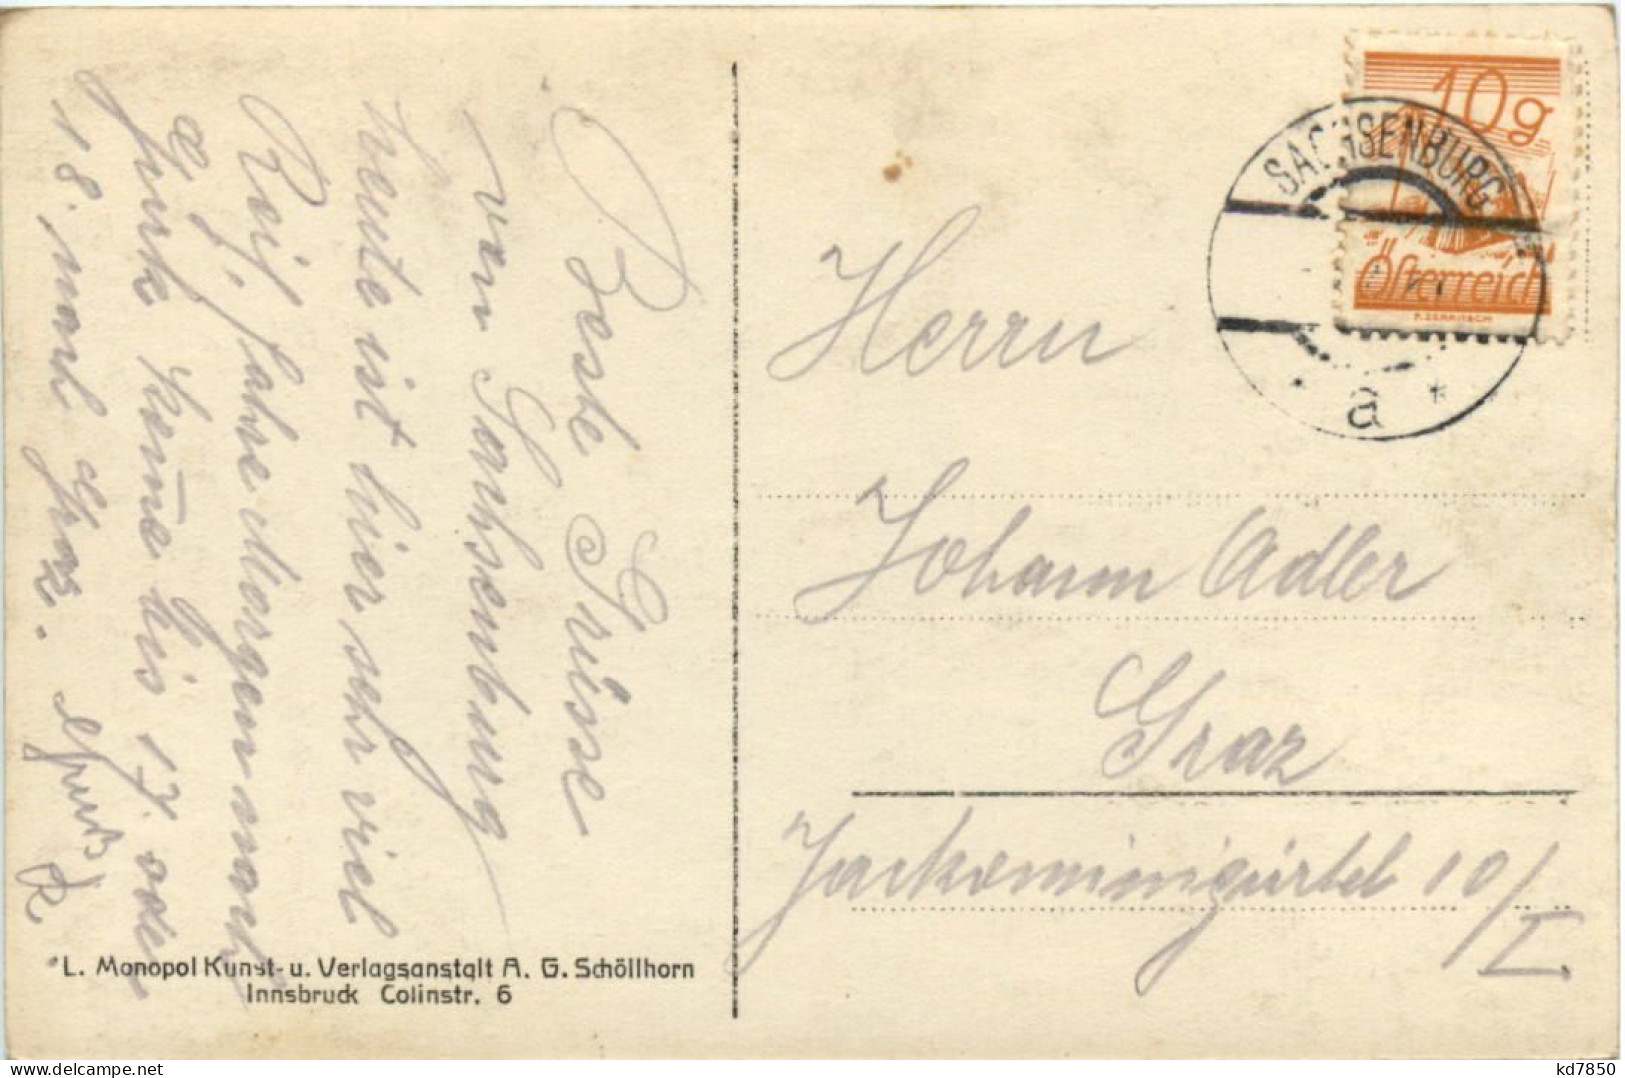 Beste Grüsse
von Sachsenburg
heute ist hier sehr viel
Reif, fahre Morgen nach
Gurk kome bis 17. oder
18. nach Graz.
L. Monopol Kunst- u. Verlagsanstalt A. G. Schöllhorn
Innsbruck Colinstr. 6
10g
Österreich
SACHSENBURG
* a *
Herrn
Johann Adler
Graz
Jackominigürtel 10/I.
kd7850